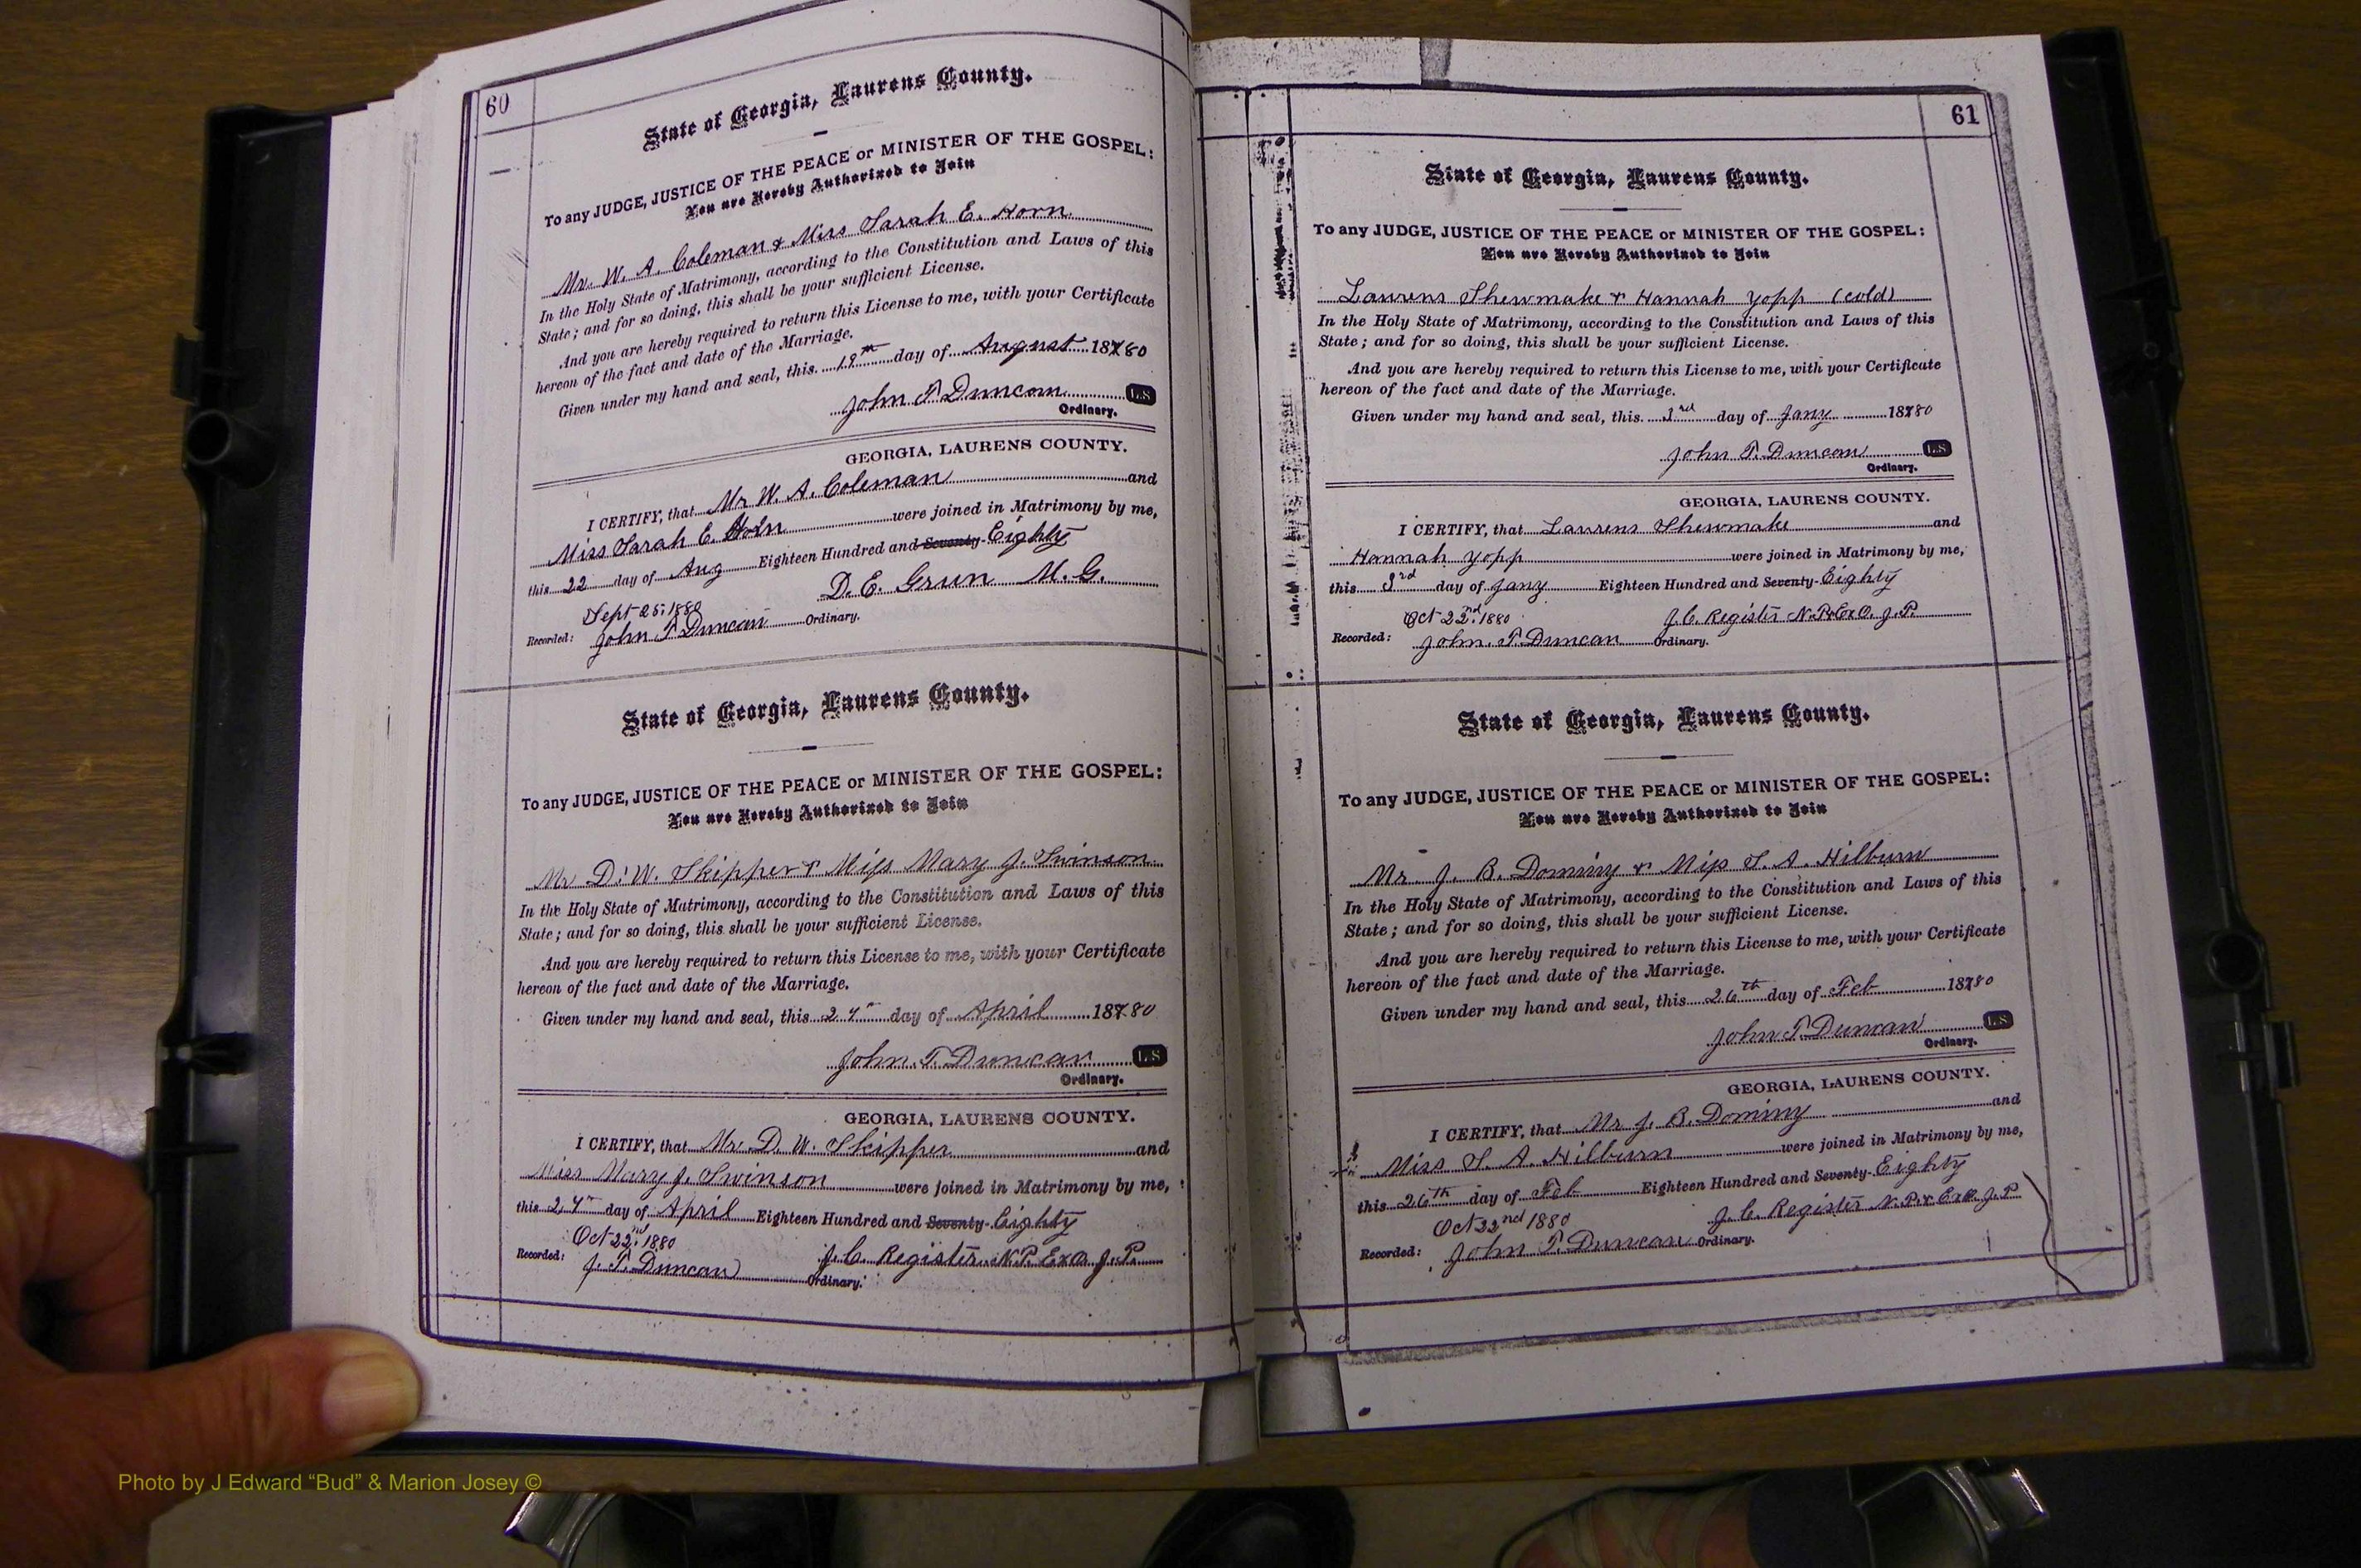 60
State of Georgia, Laurens County.
To any JUDGE, JUSTICE OF THE PEACE or MINISTER OF THE GOSPEL:
You are Hereby Authorized to Join
Mr. W. A. Coleman & Miss Sarah E. Horn
In the Holy State of Matrimony, according to the Constitution and Laws of this
State; and for so doing, this shall be your sufficient License.
And you are hereby required to return this License to me, with your Certificate
hereon of the fact and date of the Marriage.
Given under my hand and seal, this 19th day of August 18780
John T. Duncan L.S
Ordinary.
GEORGIA, LAURENS COUNTY.
I CERTIFY, that Mr W. A. Coleman and
Miss Sarah E. Horn were joined in Matrimony by me,
this 22 day of Aug Eighteen Hundred and Seventy-Eighty
D. E. Green M. G.
Sept 25, 1880
Recorded: John T. Duncan Ordinary.
State of Georgia, Laurens County.
To any JUDGE, JUSTICE OF THE PEACE or MINISTER OF THE GOSPEL:
You are Hereby Authorized to Join
Mr D. W. Skipper & Miss Mary J. Swinson
In the Holy State of Matrimony, according to the Constitution and Laws of this
State; and for so doing, this shall be your sufficient License.
And you are hereby required to return this License to me, with your Certificate
hereon of the fact and date of the Marriage.
Given under my hand and seal, this day of April 18780
John. T. Duncan L.S
Ordinary.
GEORGIA, LAURENS COUNTY.
I CERTIFY, that Mr. D. W. Skipper and
Miss Mary J. Swinson were joined in Matrimony by me,
this day of April Eighteen Hundred and Seventy-Eighty
Oct 22nd, 1880
J. C. Register N.P. Exo. J.P.
Recorded: J. T. Duncan Ordinary.
61
State of Georgia, Laurens County.
To any JUDGE, JUSTICE OF THE PEACE or MINISTER OF THE GOSPEL:
You are Hereby Authorized to Join
Laurens Shewmake & Hannah Yopp (cold)
In the Holy State of Matrimony, according to the Constitution and Laws of this
State; and for so doing, this shall be your sufficient License.
And you are hereby required to return this License to me, with your Certificate
hereon of the fact and date of the Marriage.
Given under my hand and seal, this 3rd day of Jany 18780
John T. Duncan L.S
Ordinary.
GEORGIA, LAURENS COUNTY.
I CERTIFY, that Laurens Shewmake and
Hannah Yopp were joined in Matrimony by me,
this 3rd day of Jany Eighteen Hundred and Seventy-Eighty
Oct 22nd, 1880
J. C. Register N.P. & Exo. J.P.
Recorded: John. T. Duncan Ordinary.
State of Georgia, Laurens County.
To any JUDGE, JUSTICE OF THE PEACE or MINISTER OF THE GOSPEL:
You are Hereby Authorized to Join
Mr. J. B. Dominy & Miss S. A. Hilburn
In the Holy State of Matrimony, according to the Constitution and Laws of this
State; and for so doing, this shall be your sufficient License.
And you are hereby required to return this License to me, with your Certificate
hereon of the fact and date of the Marriage.
Given under my hand and seal, this 26th day of Feb 18780
John T. Duncan L.S
Ordinary.
GEORGIA, LAURENS COUNTY.
I CERTIFY, that Mr J. B. Dominy and
Miss S. A. Hilburn were joined in Matrimony by me,
this 26th day of Feb Eighteen Hundred and Seventy-Eighty
Oct 22nd 1880
J. C. Register N.P. & Exo. J.P.
Recorded: John T. Duncan Ordinary.
Photo by J Edward “Bud” & Marion Josey ©